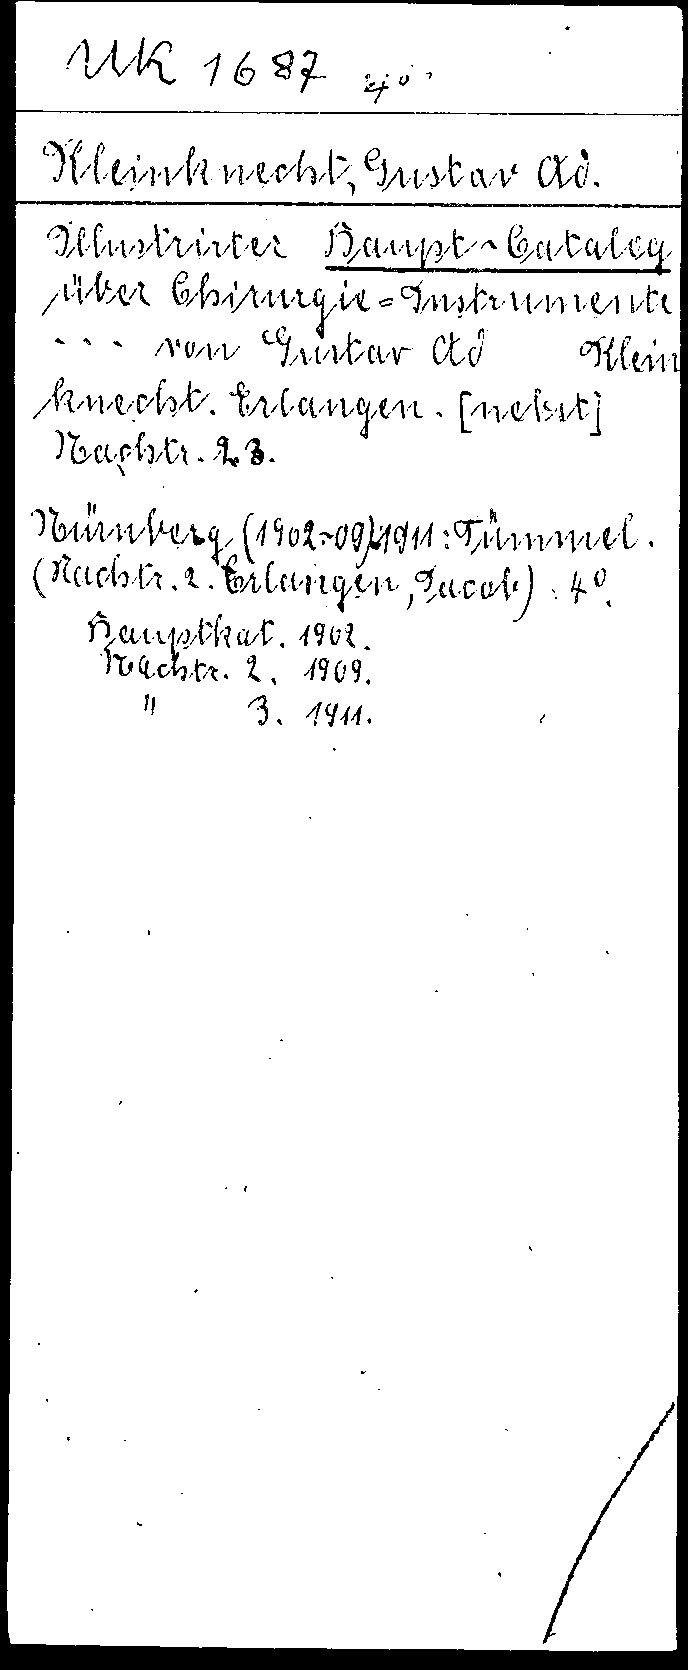 UK 1687 4°
Kleinknecht, Gustav Ad.
Illustrirter Haupt-Catalog
über Chirurgie=Instrumente
... von Gustav Ad Klein
knecht. Erlangen. [nebst]
Nachtr. 2.3.
Nürnberg (1902-09) 1911: Tümmel.
(Nachtr. 2. Erlangen, Jacob). 4°.
Hauptkat. 1902.
Nachtr. 2. 1909.
" 3. 1911.